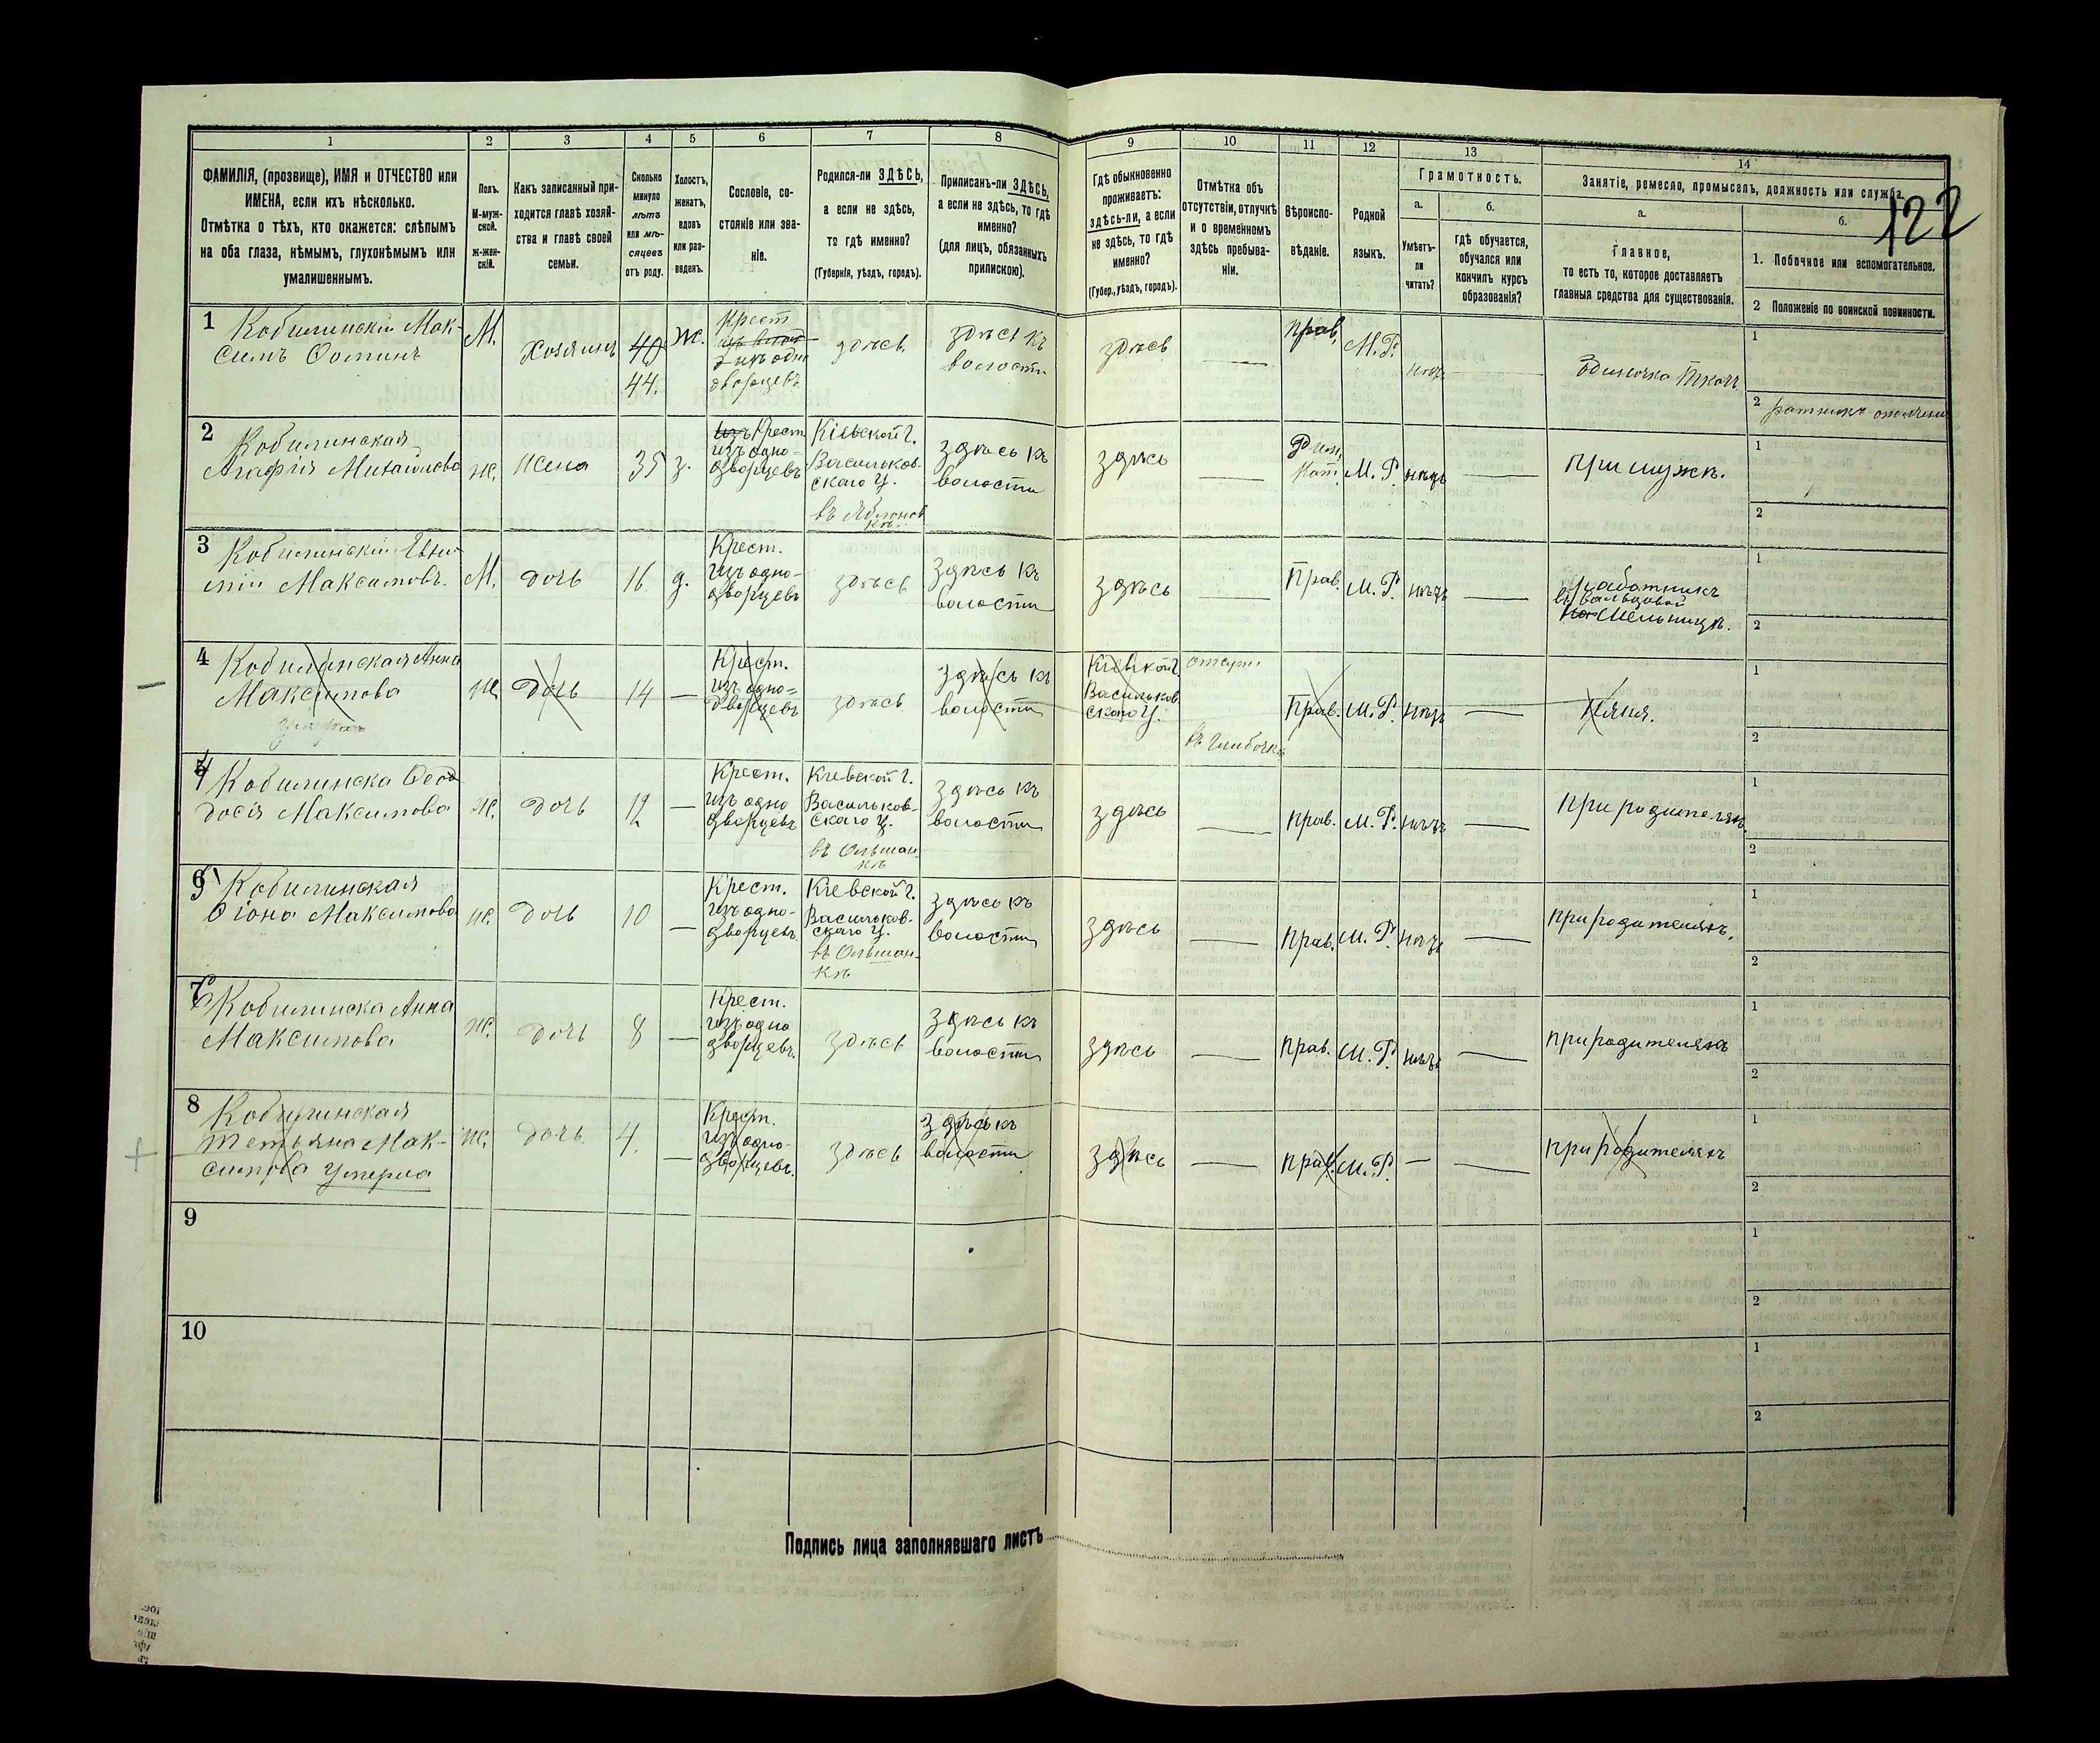 122
1
2
3
4
5
6
7
8
9
10
11
12
13
14
ФАМИЛІЯ, (прозвище), ИМЯ и ОТЧЕСТВО или
ИМЕНА, если ихъ нѣсколько.
Отмѣтка о тѣхъ, кто окажется: слѣпымъ
на оба глаза, нѣмымъ, глухонѣмымъ или
умалишеннымъ.
Полъ.
М-муж-
ской.
ж-жен-
скій.
Какъ записанный при-
ходится главѣ хозяй-
ства и главѣ своей
семьи.
Сколько
минуло
лѣтъ
или мѣ-
сяцевъ
отъ роду.
Холостъ,
женатъ,
вдовъ
или раз-
веденъ.
Сословіе, со-
стояніе или зва-
ніе.
Родился-ли ЗДѢСЬ,
а если не здѣсь,
то гдѣ именно?
(Губернія, уѣздъ, городъ).
Приписанъ-ли ЗДѢСЬ,
а если не здѣсь, то гдѣ
именно?
(для лицъ, обязанныхъ
припискою).
Гдѣ обыкновенно
проживаетъ:
здѣсь-ли, а если
не здѣсь, то гдѣ
именно?
(Губер., уѣздъ, городъ).
Отмѣтка объ
отсутствіи, отлучкѣ
и о временномъ
здѣсь пребыва-
ніи.
Вѣроиспо-
вѣданіе.
Родной
языкъ.
Грамотность.
а.
Умѣетъ-
ли
читать?
б.
гдѣ обучается,
обучался или
кончилъ курсъ
образованія?
Занятіе, ремесло, промыселъ, должность или служба.
а.
Главное,
то есть то, которое доставляетъ
главныя средства для существованія.
б.
1. Побочное или вспомогательное.
2 Положеніе по воинской повинности.
1 Кобилинскій Мак-
симъ Ѳоминъ
М.
Хозяинъ
40
44.
Ж.
Крест
дворцевъ
здѣсь
здѣсь къ
волости
здѣсь
—
Прав.
М.Р.
нѣтъ
—
Ткачъ
1
2 ратникъ ополченія
2 Кобилинская
Агафія Михайлова
ж.
Жена
35
з.
Крест
изъ одно-
дворцевъ
Кіевской г.
Васильков-
скаго у.
въ Яблонов
кѣ
здѣсь къ
волости
здѣсь
—
Рим.
Кат.
М. Р.
нѣтъ
—
при мужѣ.
1
2
3 Кобилинскій Евѳи-
мій Максимовъ.
М.
дочь
16
д.
Крест.
изъ одно-
дворцевъ
здѣсь
здѣсь къ
волости
здѣсь
—
Прав.
М. Р.
нѣтъ
—
работникъ
въ вальцовой
мельницѣ.
1
2
4 Кобилинская Анна
Максимова
умерла
ж
дочь
14
—
Крест.
изъ одно-
дворцевъ
здѣсь
здѣсь къ
волости
Кіевкой г.
Васильков
скаго у.
отсут.
Прав.
М. Р.
нѣтъ
—
Няня.
1
2
Кобилинска Ѳеодо
досія Максимова
ж.
дочь
12
—
Крест.
изъ одно
дворцевъ
Кіевской г.
Васильков-
скаго у.
въ Ольшан-
кѣ
здѣсь къ
волости
здѣсь
—
прав.
М. Р.
нѣтъ
—
при родителяхъ
1
2
Кобилинская
Ѳіона Максимова
ж.
дочь
10
—
Крест.
изъ одно-
дворцевъ
Кіевской г.
Васильков-
скаго у.
въ Ольшан-
кѣ
здѣсь къ
волости
здѣсь
—
Прав.
М. Р.
нѣтъ
—
при родителяхъ.
1
2
Кобилинска Анна
Максимова
ж.
дочь
8
—
Крест.
изъ одно
дворцевъ.
здѣсь
здѣсь къ
волости
здѣсь
—
Прав.
М. Р.
нѣтъ
—
при родителяхъ
1
2
8 Кобилинская
Тетьяна Мак-
симова умерла
ж.
дочь
4.
—
Крест.
изъ одно-
дворцевъ.
здѣсь
здѣсь къ
волости
здѣсь
—
прав.
М. Р.
—
—
при родителяхъ
1
2
9
1
2
10
1
2
Подпись лица заполнявшаго листъ